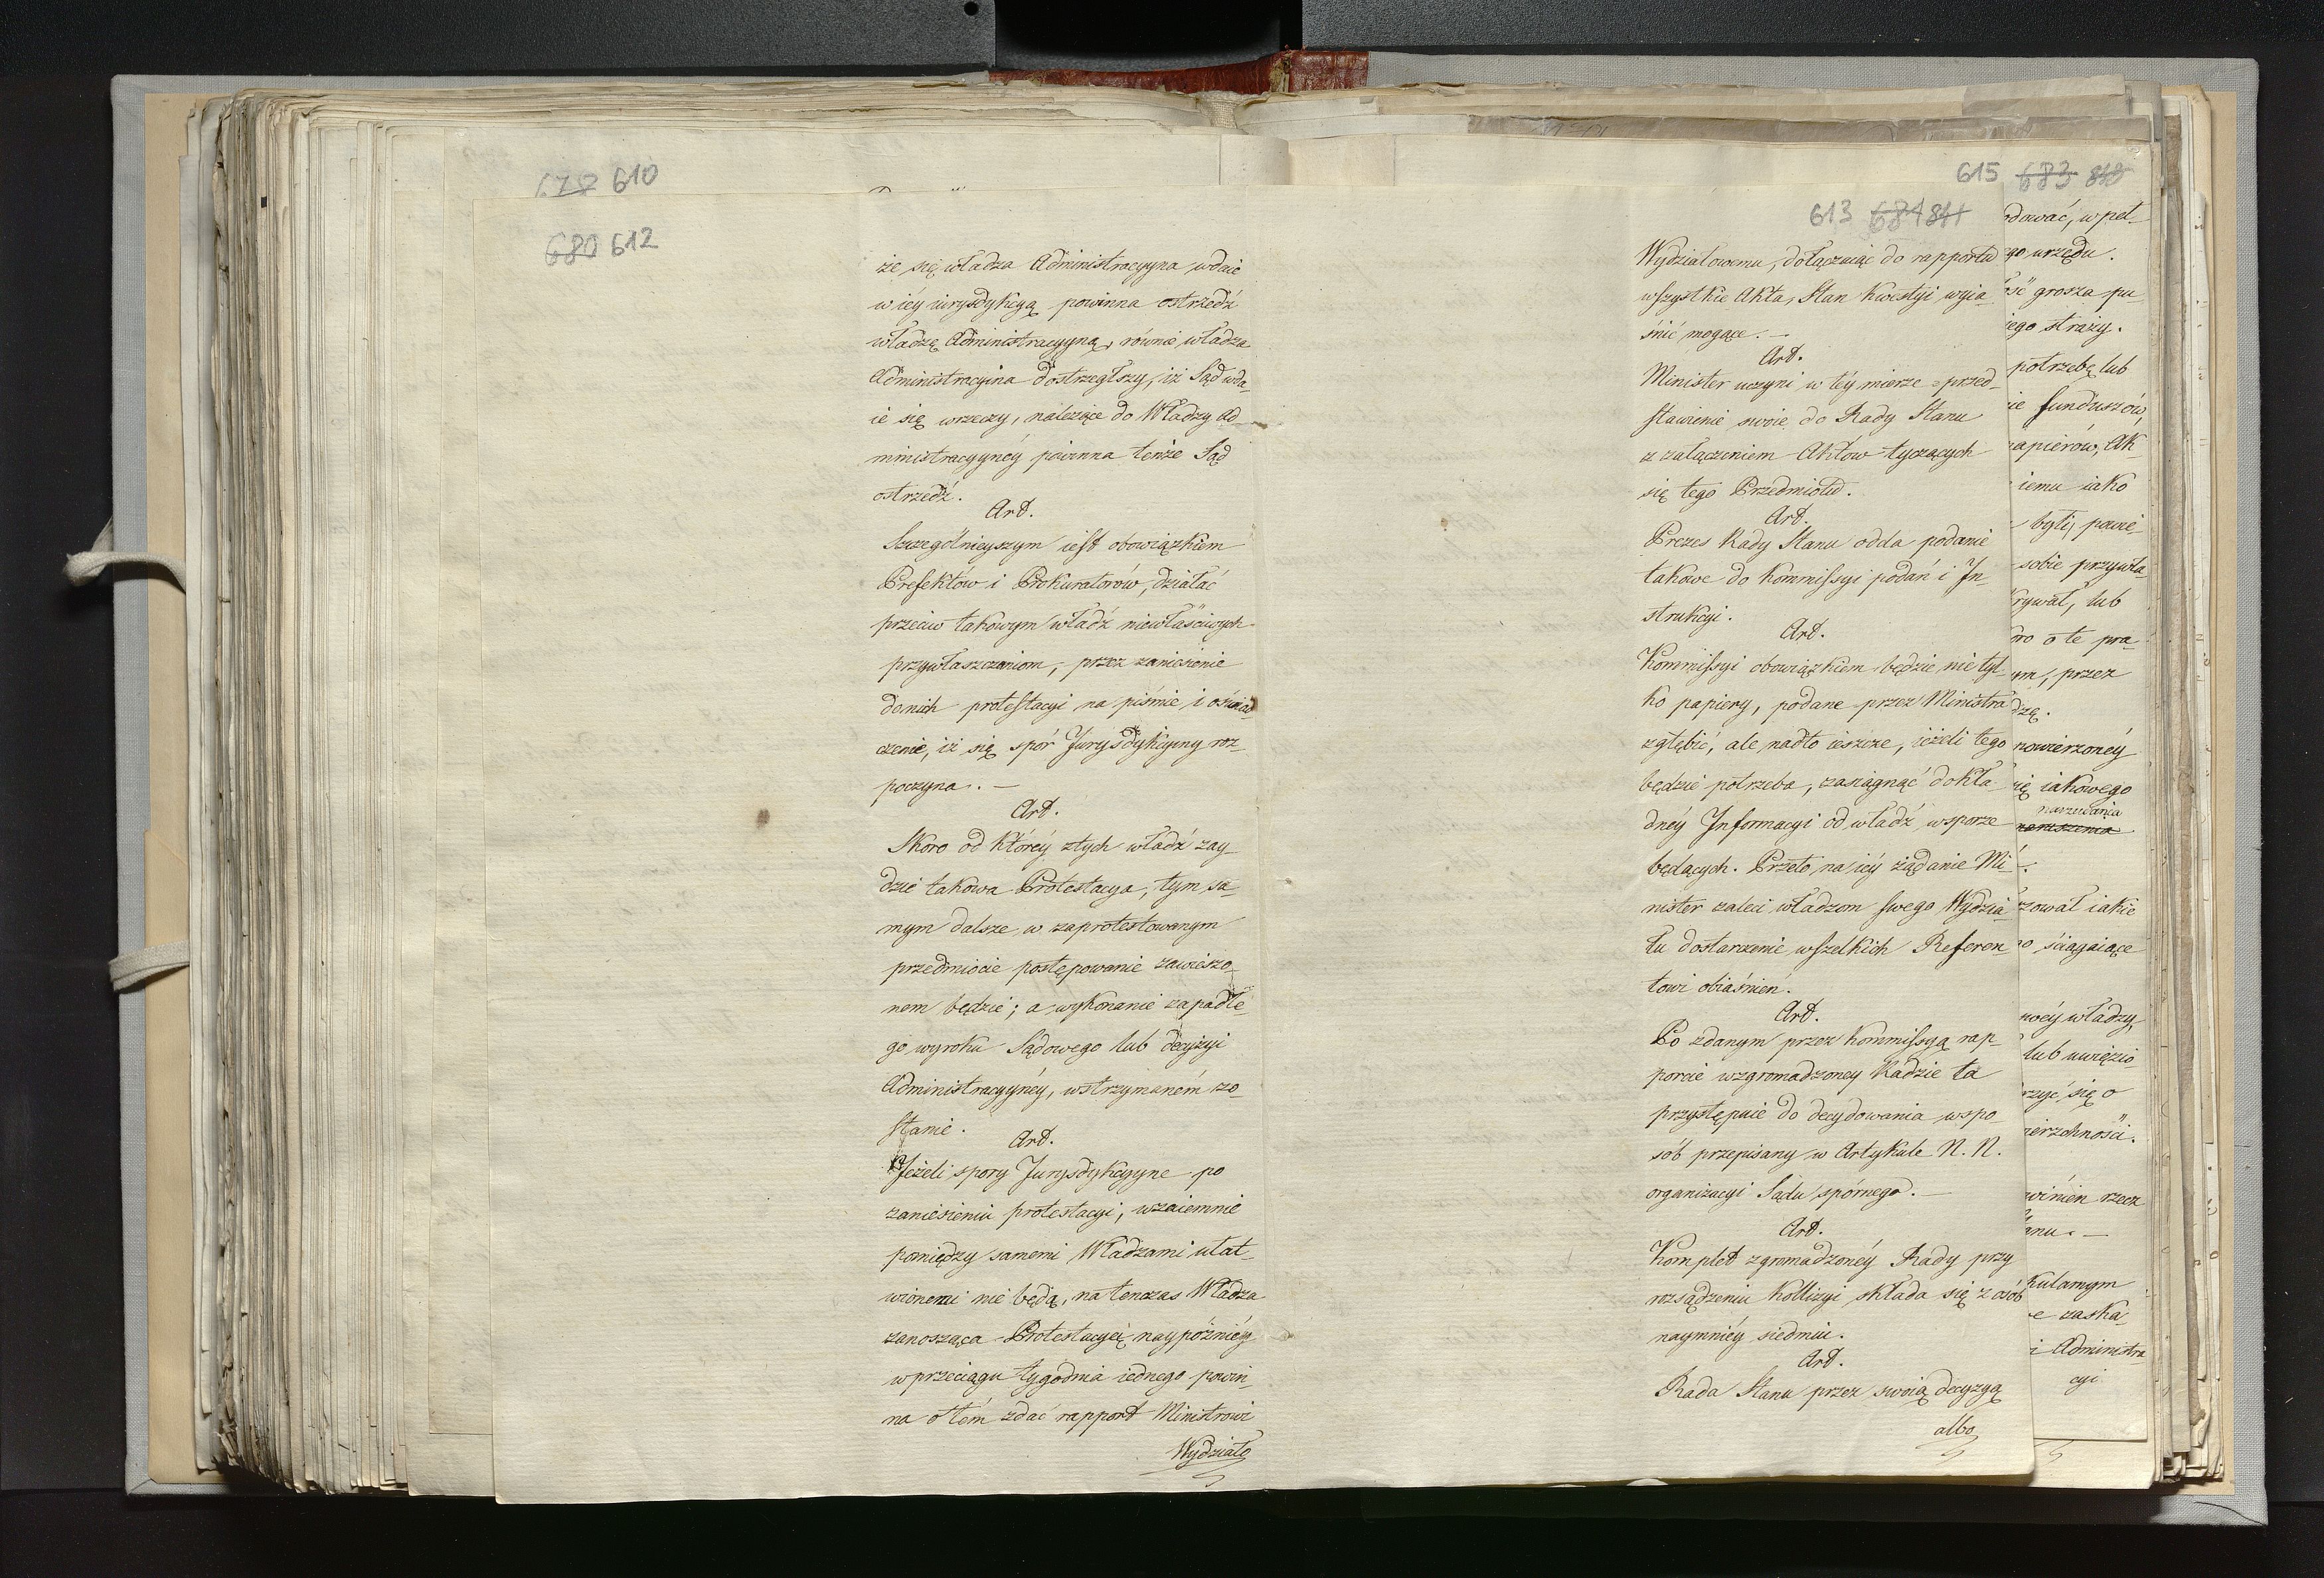 678 610
680 612
że się władza Administracyyna wdaie
w iéy iurysdykcyą powinna ostrzedź
władzę Administracyyną, równie władza
Administracyina dostrzegłszy, iż Sąd wda-
ie się w rzeczy, należące do Władzy Ad-
ministracyynéy powinna tenże Sąd
ostrzedź.
Art.
Szczególnieyszym iest obowiązkiem
Prefektów i Prokuratorów, działać
przeciw takowym władź niewłaściwych
przywłaszczaniom, przez zaniesienie
do nich protestacyi na piśmie i oświad-
czenie, iż się spór Jurysdykcyiny roz-
poczyna. —
Art.
Skoro od któréy z tych władź zay-
dzie takowa Protestacya, tym sa-
mym dalsze w zaprotestowanym
przedmiocie postępowanie zawieszo-
nem będzie; a wykonanie zapadłe-
go wyroku Sądowego lub decyzyi
Administracyynéy, wstrzymaném zo-
stanie.
Art.
Jeżeli spory Jurysdykcyyne po
zaniesieniu protestacyi, wzaiemnie
pomiędzy samemi Władzami ułat-
wionemi nie będą, na tenczas Władza
zanosząca Protestacyą naypóźniéy
w przeciągu tygodnia iednego powin-
na o tém zdać rapport Ministrowi
Wydziało
613 681 841
Wydziałowemu, dołączaiąc do rapportu
wszystkie Akta, Stan kwestyi wyia-
śnić mogące. —
Art.
Minister uczyni w téy mierze przed-
stawienie swoie do Rady Stanu
z załączeniem Aktów tyczących
się tego Przedmiotu.
Art.
Prezes Rady Stanu odda podanie
takowe do Kommissyi podań i In-
strukcyi.
Art.
Kommissyi obowiązkiem będzie nie tyl-
ko papiery, podane przez Ministra
zgłębić, ale nadto ieszcze, ieżeli tego
będzie potrzeba, zasiągnąć dokła-
dnéy Informacyi od władź w sporze
będących. Przeto na iéy żądanie Mi-
nister zaleci władzom swego Wydzia-
łu dostarczenie wszelkich Referen-
towi obiaśnień.
Art.
Po zdanym przez Kommissyą rap-
porcie w zgromadzoney Radzie ta
przystępuie do decydowania w spo-
sób przepisany w Artykule N. N.
organizacyi Sądu spórnego. —
Art.
Komplet zgromadzonéy Rady przy
rozsądzeniu Kollizyi składa się z osób
naymniéy siedmiu.
Art.
Rada Stanu przez swoią decyzyą
albo
615 683 843
odować, w peł-
go urzędu.
ść grosza pu-
iego straży.
potrzebę lub
ie funduszów,
papierów, Ak-
iemu iako
byli, powie-
sobie przywła-
krywał, lub
oro o te pra-
ym, przez
dzę.
powierzonéy
ię iakowego
naruszenia
zował iakie
o ściągaiące
władzy,
lub uwięzio-
rzyć się o
ierzchności.
winien rzecz
anu. —
kularnym
e zaska-
i Administra-
cyi